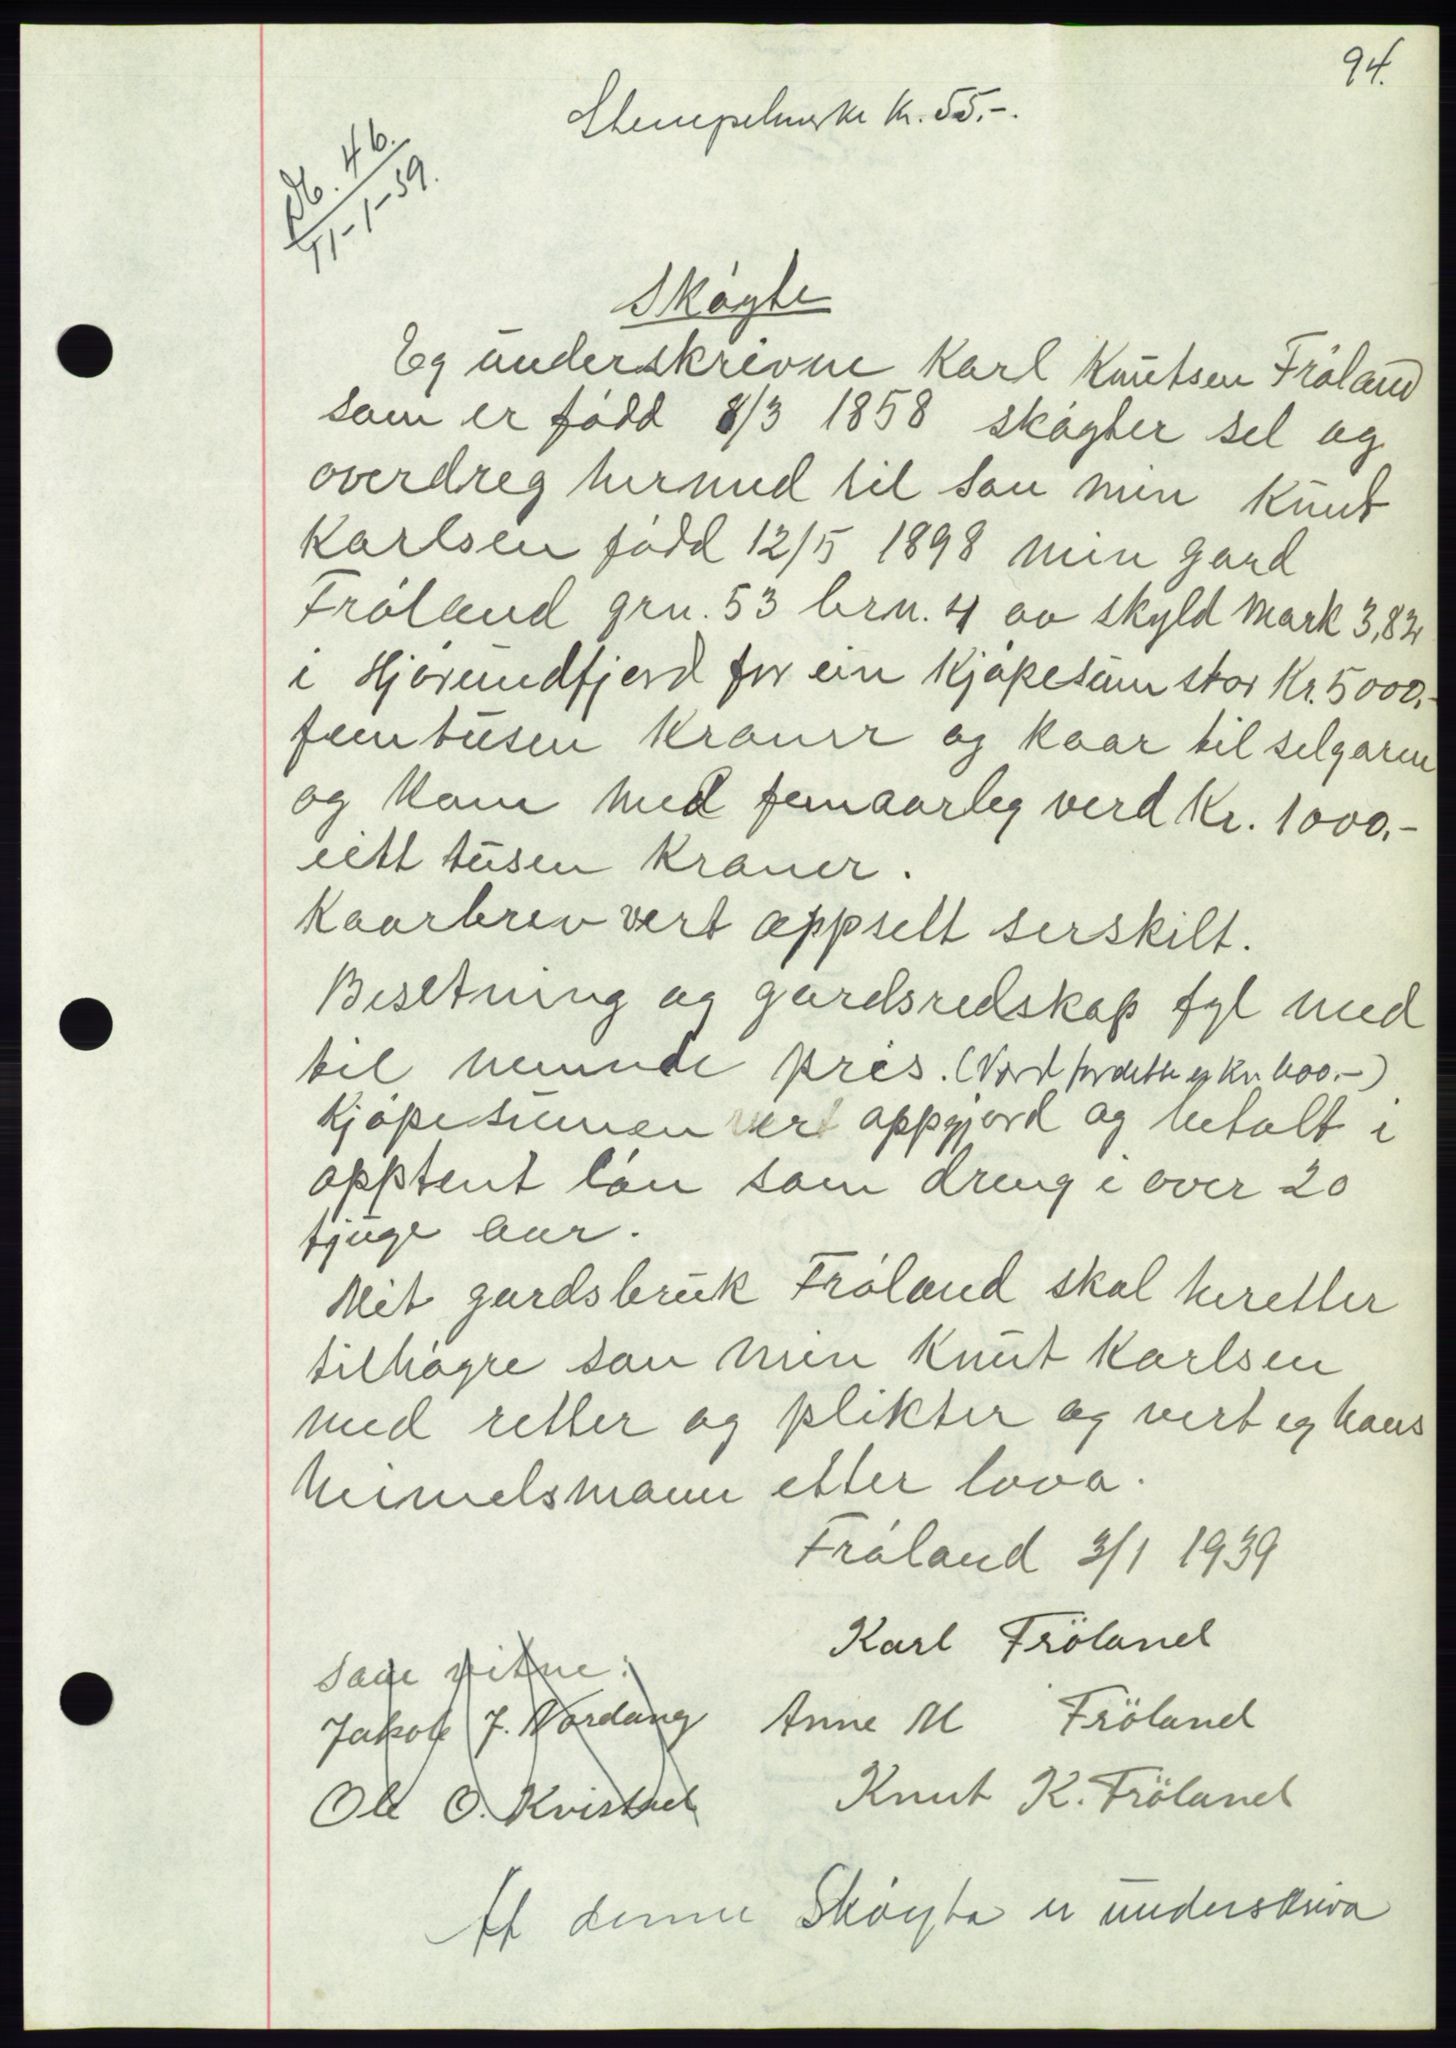 94.
Stempelmerke kr. 55.-.
Db. 46.
11-1-39.
Skøgte
Eg underskrivne Karl Knutsen Frøland
som er fødd 8/3 1858 skøgter sel og
overdreg hermed til son min Knut
Karlsen fødd 12/5 1898 min gard
Frøland grn. 53 brn. 4 av skyld Mark 3,82
i Hjørundfjord for ein kjøpesum stor Kr. 5000.-
femtusen kroner og kaar til selgaren
og kone med femaarleg verd Kr. 1000.-
eitt tusen kroner.
Kaarbrev vert oppsett serskilt.
Besetning og gardsredskap fyl med
til nemnde pris. (Verd for dette er kr. 600.-)
Kjøpesumen vert oppgjord og betalt i
opptent løn som dreng i over 20
tjuge aar.
Mit gardsbruk Frøland skal heretter
tilhøgre son min Knut Karlsen
med retter og plikter og vert eg hans
heimelsmann etter lova.
Frøland 3/1 1939
Karl Fröland
Som vitne:
Jakob J. Nordang Anne M Fröland
Ole O. Kvistad Knut K. Fröland
At denne Skøyta er underskriva